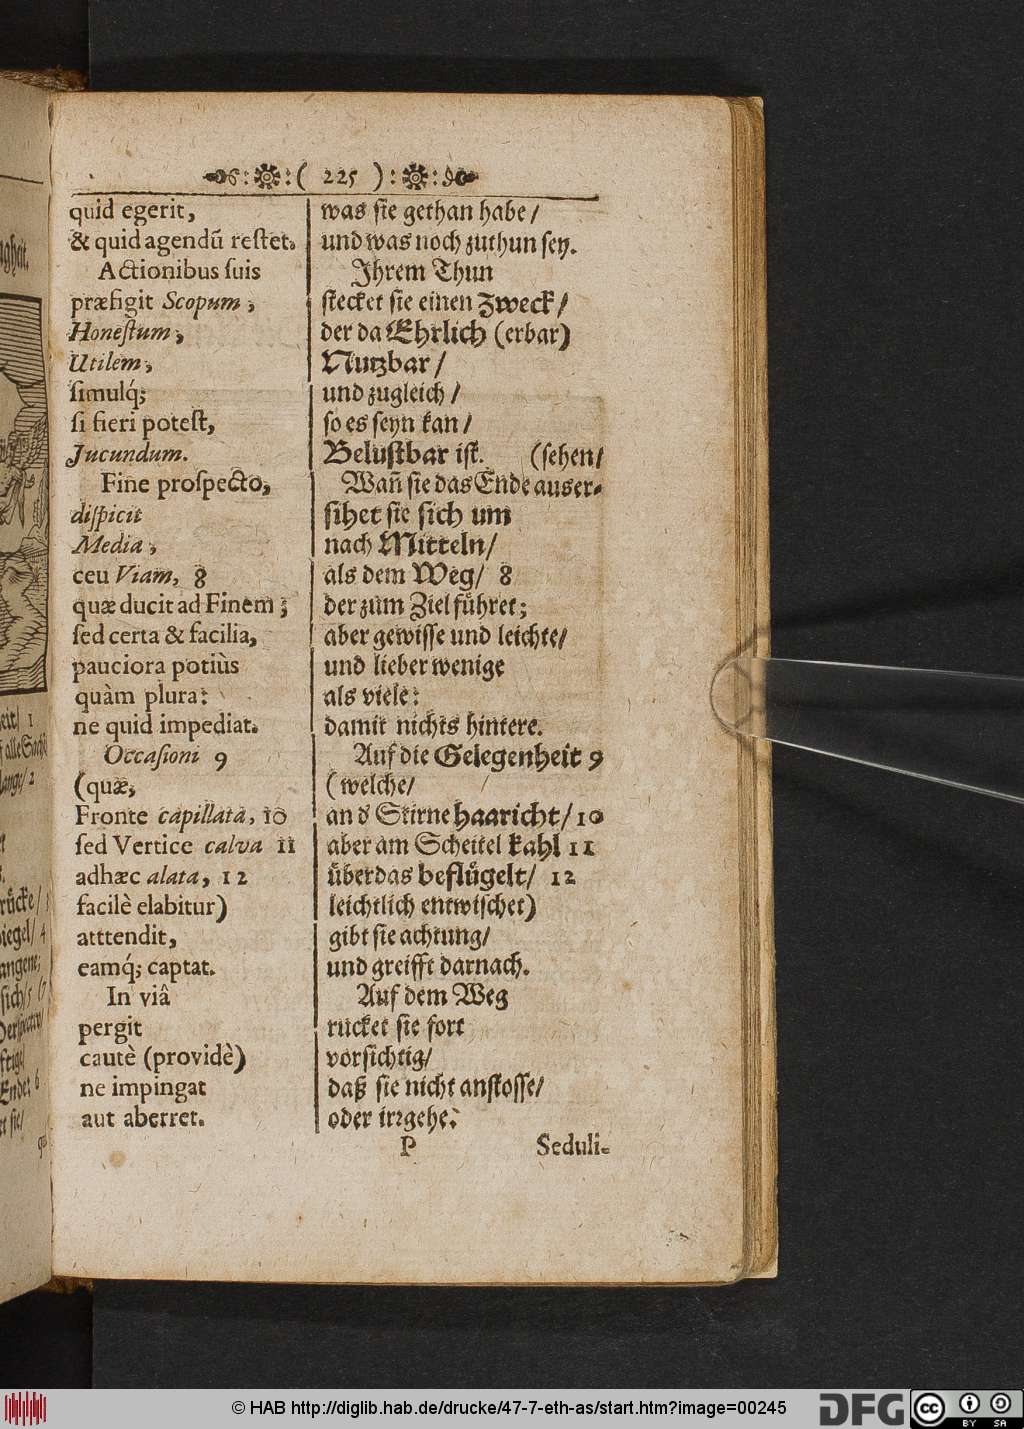 ( 225 )
quid egerit,
& quid agendū reſtet.
Actionibus ſuis
præfigit Scopum ;
Honeſtum ;
Utilem ;
ſimulq́;
ſi fieri poteſt,
Jucundum.
Fine proſpecto,
diſpicit
Media ;
ceu Viam, 8
quæ ducit ad Finem ;
ſed certa & facilia,
pauciora potiùs
quàm plura:
ne quid impediat.
Occaſioni 9
(quæ,
Fronte capillata, 10
ſed Vertice calva 11
adhæc alata, 12
facilè elabitur)
atttendit,
eamq́; captat.
In viâ
pergit
cautè (providè)
ne impingat
aut aberret.
was ſie gethan habe /
und was noch zuthun ſey.
Ihrem Thun
ſtecket ſie einen Zweck /
der da Ehrlich (erbar)
Nutzbar /
und zugleich /
ſo es ſeyn kan /
Beluſtbar iſt. (ſehen/
Wañ ſie das Ende auser-
ſihet ſie ſich um
nach Mitteln/
als dem Weg/ 8
der zum Ziel fůhret;
aber gewiſſe und leichte/
und lieber wenige
als viele:
damit nichts hintere.
Auf die Gelegenheit 9
(welche/
an d' Stirne haaricht/ 10
aber am Scheitel kahl 11
überdas beflůgelt/ 12
leichtlich entwiſchet)
gibt ſie achtung/
und greifft darnach.
Auf dem Weg
rücket ſie fort
vorſichtig/
daß ſie nicht anſtoſſe/
oder irꝛgehe.
P
Seduli-
© HAB http://diglib.hab.de/drucke/47-7-eth-as/start.htm?image=00245
DFG
cc
BY SA